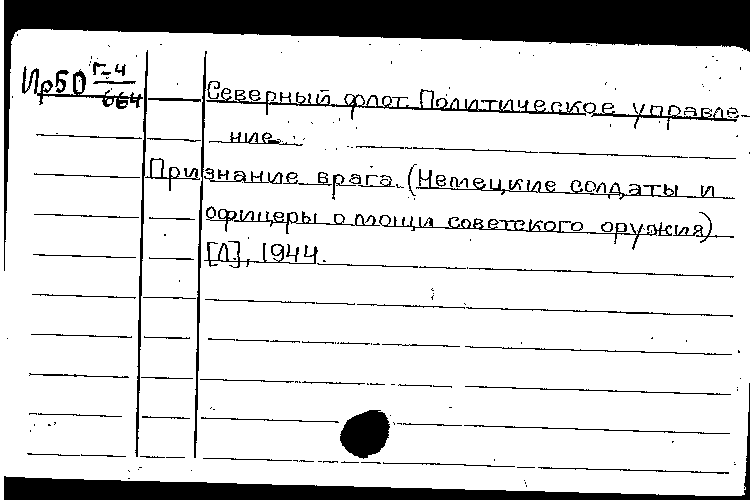 Ир50 Г-4/664
Северный флот. Политическое управле-
ние.
Признание врага. (Немецкие солдаты и
офицеры о мощи советского оружия)
[Л], 1944.